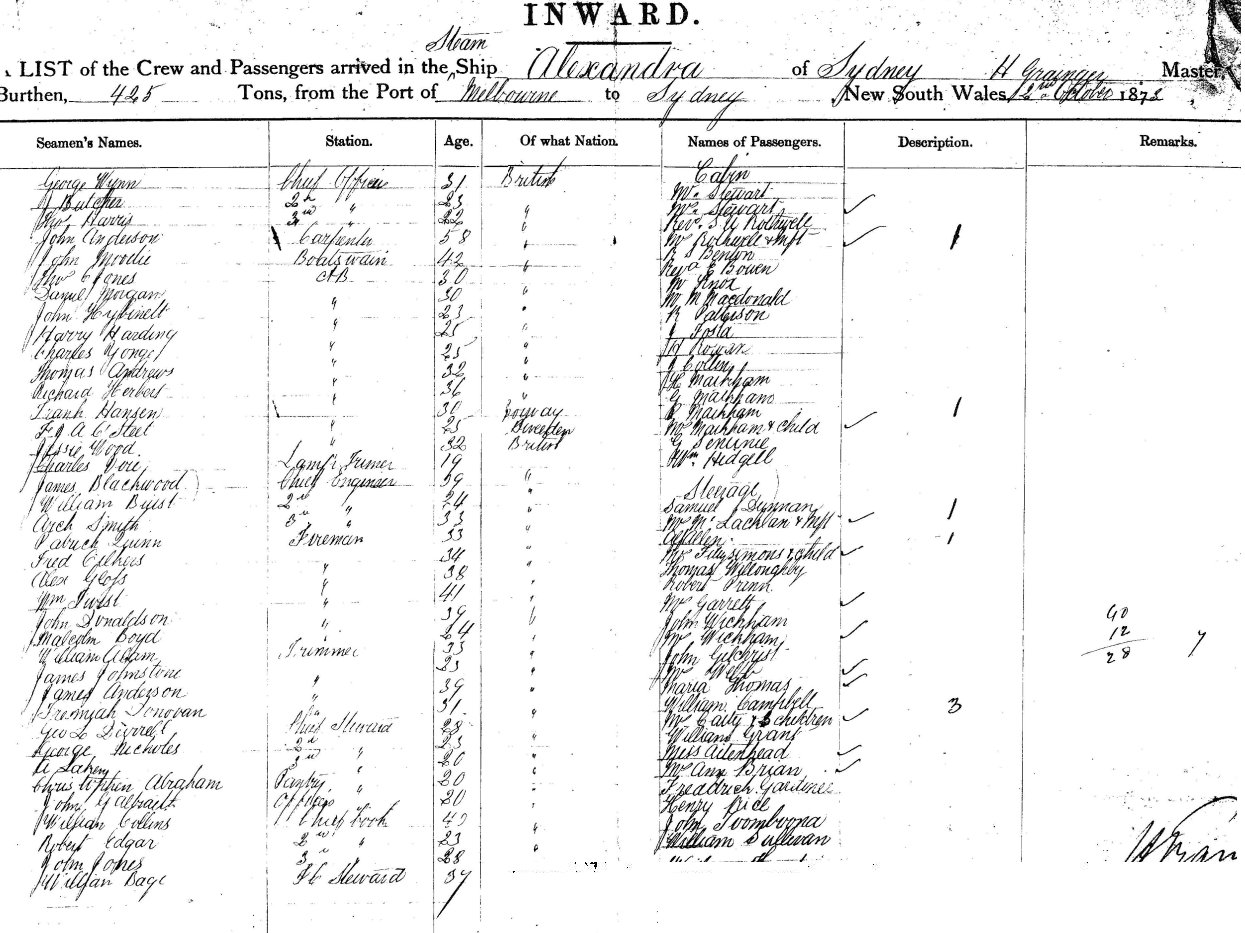 INWARD.
Steam
LIST of the Crew and Passengers arrived in the Ship Alexandra of Sydney H Grainger Master,
Burthen, 425 Tons, from the Port of Melbourne to Sydney New South Wales, 2nd October 1872
Seamen's Names. Station. Age. Of what Nation. Names of Passengers. Description. Remarks.
George Wynn Chief Officer 31 British Cabin
Butcher 2nd " 23 " Mr Stewart
Thos Harris 3rd " 22 " Mrs Stewart
John Anderson Carpenter 58 " Revd Rothwell
John Moodie Boatswain 42 " Mrs Rothwell & Inft 1
Thos C Jones AB 30 " R S Benson
Daniel Morgan " 30 " Revd E Bowen
John " 23 " Mr Knox
Harry Harding " 25 " Mr M Macdonald
Charles Yonge " 25 " R Pattison
Thomas Andrews " 32 "
Richard Herbert " 36 " Rowan
Frank Hansen " 30 Norway Collins
" 25 Sweeden Markham
Wood " 32 British G Markham
Charles Lamp Trimer 19 Markham 1
James Blackwood Chief Engineer 39 " Mrs Markham & Child
William Buist 2nd " 24 " G
Arch Smith 3rd " 33 " Wm Hidgell
Patrick Quinn Fireman 33 " Steerage
Fred 34 Samuel Dunnan
Alex Gloss " 38 " Mrs McLachlan & Inft 1
Wm Twist " 41 " Allen 1
John Donaldson " 39 " Mrs Fitzsimons & Child
Malcolm Boyd " " Thomas Willoughby
William Adam Trimmer 33 " Robert Prenn
James Johnstone 23 Mrs Garrett
James Anderson " 39 " John Wickham 40
Jeremiah Donovan " 31 " Mrs Wickham 12
Geo L Chief Steward 28 " John Gilchrist 28 7
George Nicholes 2nd 23 " Mrs Webb
3rd " 20 " Maria Thomas
Abraham Pantry " 20 " William Campbell 3
John Galbraith Officers 20 " Mrs & 3 children
William Collins Chief Cook 40 " William Grant
Robert Edgar 2nd " 23 " Miss Aitenhead
John Jones 3rd 28 Mrs Ann Brian
William Bage F C Steward 37 Fredrich Gardiner
Henry Rice
John Toomboona
William Sullivan